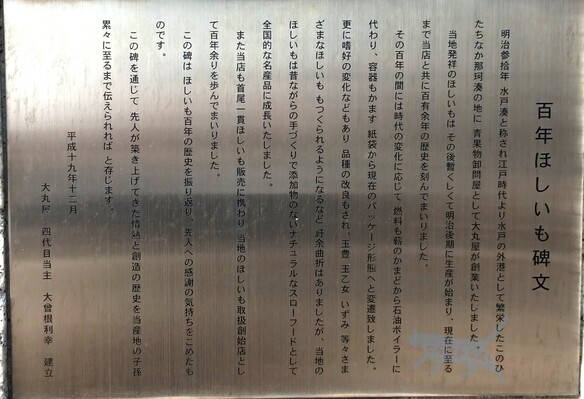 百年ほしいも碑文
明治参拾年 水戸湊と称され江戸時代より水戸の外港として繁栄したこのひ
たちなか那珂湊の地に 青果物卸問屋として大丸屋が創業いたしました。
当地発祥のほしいもは その後暫くして明治後期に生産が始まり、現在に至る
まで当店と共に百有余年の歴史を刻んでまいりました。
その百年の間には時代の変化に応じて 燃料も薪のかまどから石油ボイラーに
代わり、容器もかます 紙袋から現在のパッケージ形態へと変遷致しました。
更に嗜好の変化などもあり 品種の改良もされ、玉豊 玉乙女 いずみ 等々さま
ざまなほしいも もつくられるようになるなど 紆余曲折はありましたが、当地の
ほしいもは昔ながらの手づくりで添加物のないナチュラルなスローフードとして
全国的な名産品に成長いたしました。
また当店も首尾一貫ほしいも販売に携わり 当地のほしいも取扱創始店とし
て百年余りを歩んでまいりました。
この碑は ほしいも百年の歴史を振り返り、先人への感謝の気持ちをこめたも
のです。
この碑を通じて 先人が築き上げてきた情熱と創造の歴史を当産地の子孫
累々に至るまで伝えられれば と存じます。
平成十九年十二月
大丸屋 四代目当主 大曾根利幸 建立